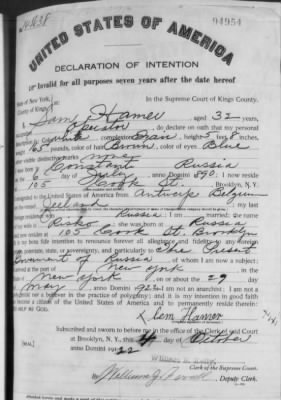 94954
UNITED STATES OF AMERICA
DECLARATION OF INTENTION
Invalid for all purposes seven years after the date hereof
State of New York,
County of Kings,
In the Supreme Court of Kings County.
I, Sam Hamer, aged 32 years,
occupation Operator, do declare on oath that my personal
white, complexion, height 5 feet 8 inches,
65 pounds, color of hair Brown, color of eyes Blue
other visible distinctive marks none
Russia
on the 6 day of July, anno Domini 890; I now reside
at 105 Cook St., Brooklyn, N. Y.
I emigrated to the United States of America from Antwerp Belgium
on the vessel Zeeland; my last
foreign residence was Russia; I am married; the name
of my wife is; she was born at Russia
and now resides at 105 Cook St. Brooklyn
It is my bona fide intention to renounce forever all allegiance and fidelity to any foreign
prince, potentate, state, or sovereignty, and particularly to The Present
Government of Russia, of whom I am now a subject;
I arrived at the port of New York, in the
State of New York, on or about the 29 day
of May, anno Domini 192; I am not an anarchist; I am not a
polygamist nor a believer in the practice of polygamy; and it is my intention in good faith
to become a citizen of the United States of America and to permanently reside therein:
SO HELP ME GOD.
Hamer
Subscribed and sworn to before me in the office of the Clerk of said Court
at Brooklyn, N. Y., this 4 day of October
anno Domini 1922
[SEAL]
Clerk of the Supreme Court.
By William J., Deputy Clerk.